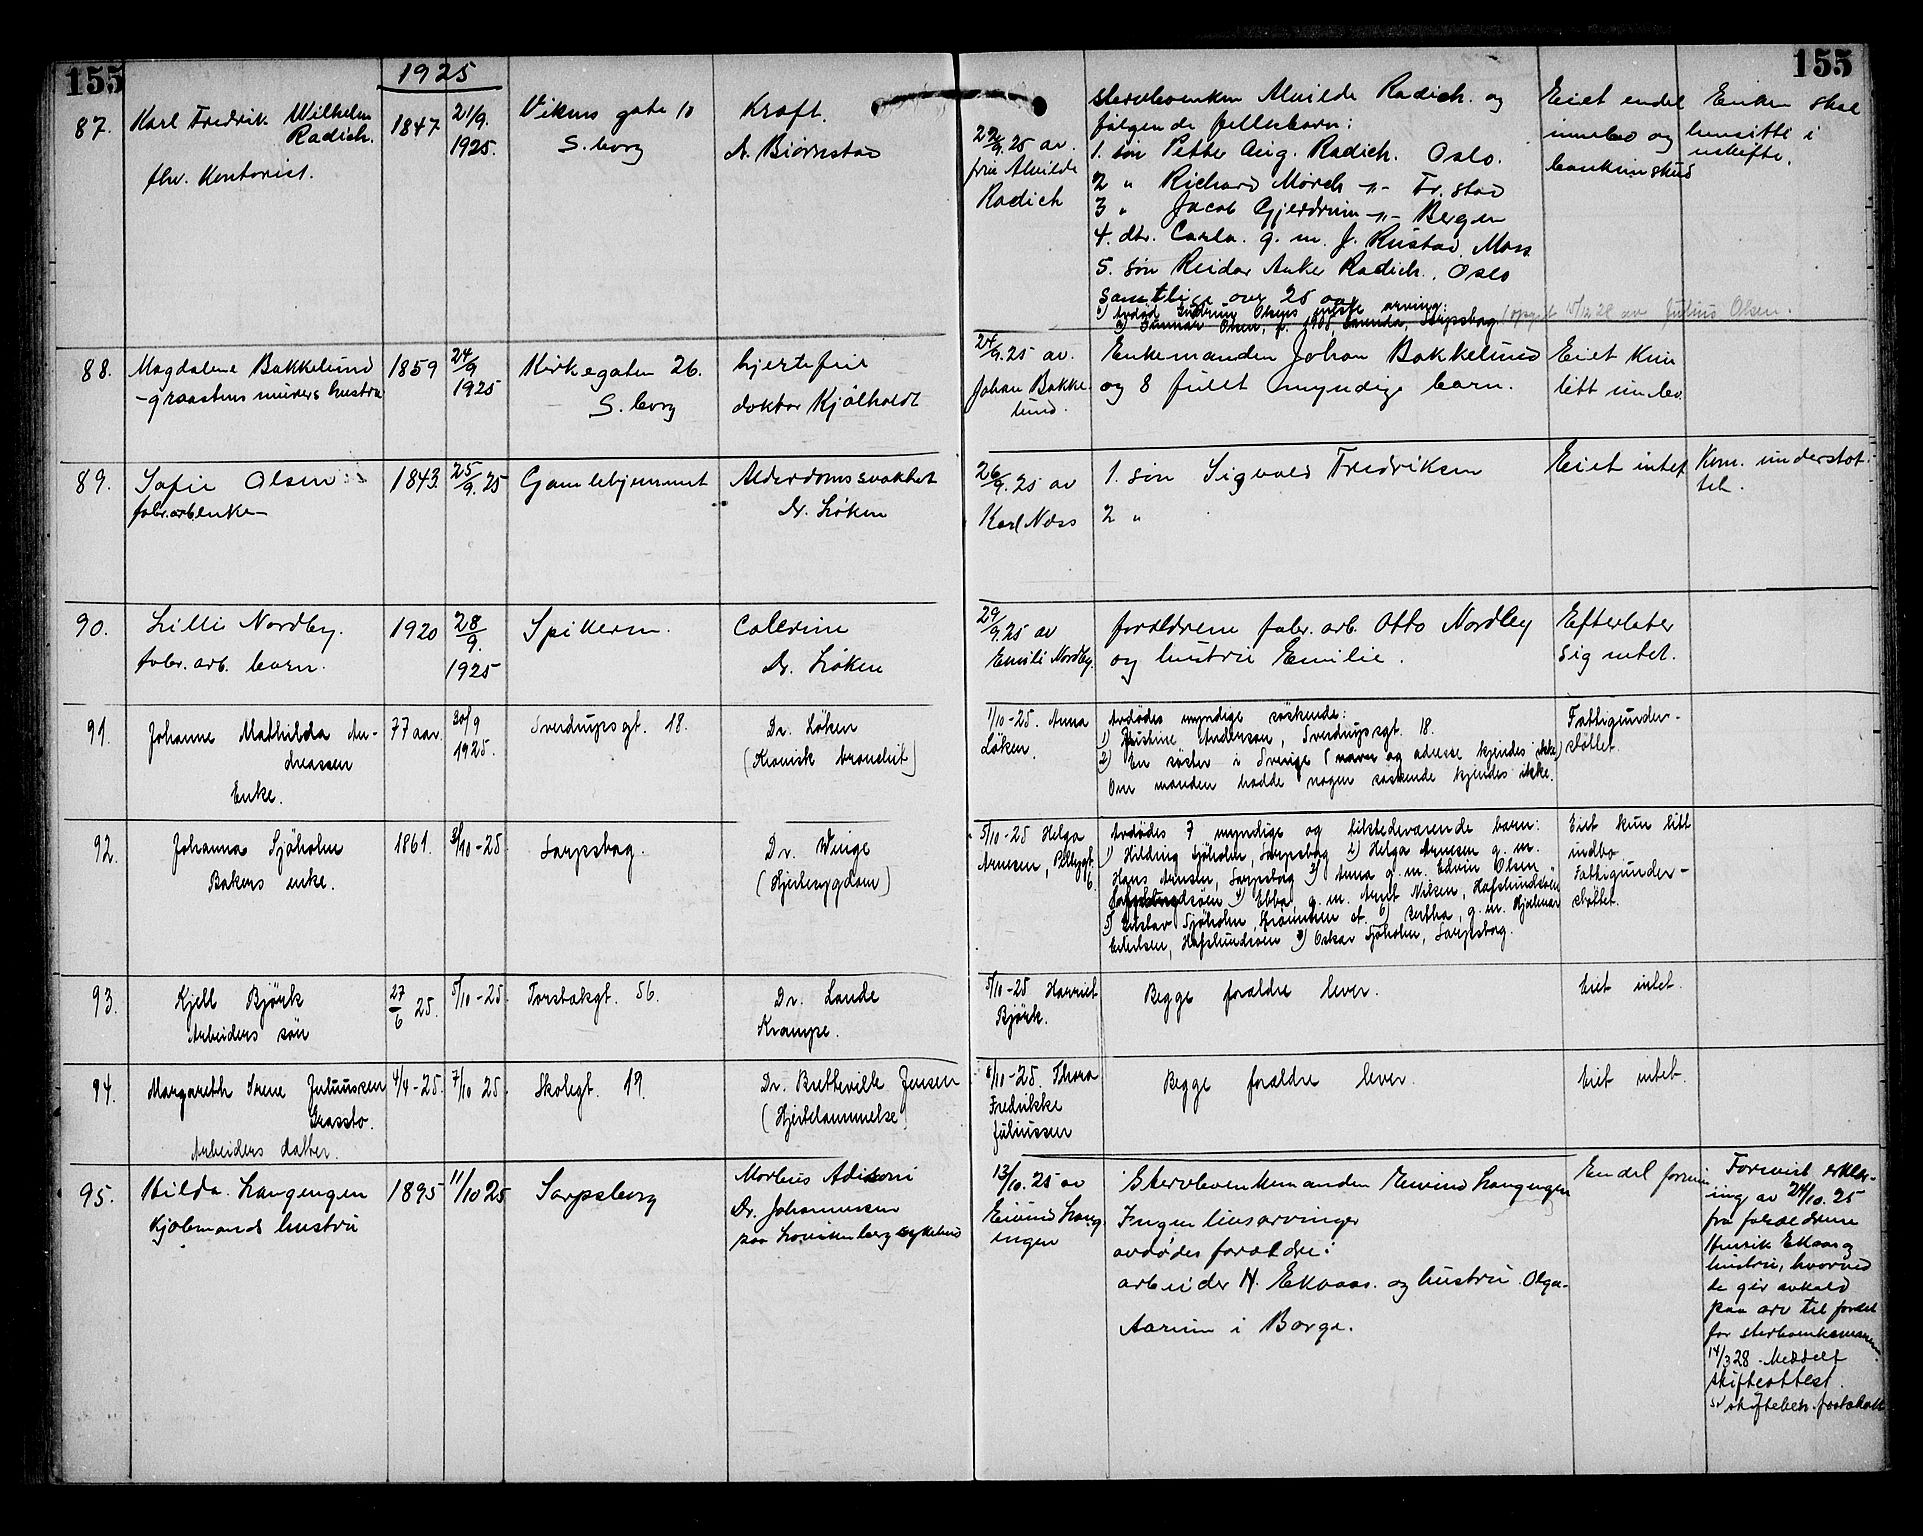 155
1925
155
87.
Karl Fredrik Wilhelm
Radich.
fhv. Kontorist.
1847
21/9.
1925.
Vikens gate 10
S.borg
Kraft.
Dr. Bjørnstad
22/9.25 av.
fru Alvilde
Radich
Stervboenken Alvilde Radich. og
følgende fellesbarn:
1. søn Petter Aug. Radich. Oslo.
2 " Richard Mørch -"- Fr.stad
3 " Jacob Gjerdrum -"- Bergen
4. dtr. Carla. g. m. J. Rustad, Moss
5. søn Reidar Anker Radich. Oslo
Samtlige over 25 aar
1) Avdød Gudrun Olsens eneste arving:
2) Gunnar Olsen, f. 1905, Sarpsborg (opgit 15/12 28 av Julius Olsen.
Eiet endel
innbo og
bankinskud
Enken skal
hensitte i
uskifte.
88.
Magdalene Bakkelund
- graastensmurers hustru
1859
24/9
1925
Kirkegaten 26.
S.borg
hjertefeil
doktor Kjølholdt
24/9.25 av.
Johan Bakke
lund.
Enkemanden Johan Bakkelund
og 8 fullt myndige barn.
Eiet kun
litt innbo
89.
Sofie Olsen
fabr.arb.enke -
1843
25/9.25
Gamlehjemmet
Alderdomssvakhet
Dr. Løken
26/9.25 av
Karl Næss
1. søn Sigvald Fredriksen
2 "
Eiet intet
Kom. understøt-
tet.
90.
Lilli Nordby.
fabr. arb. barn.
1920
28/9.
1925
Spikeren.
Dr. Løken
29/9.25 av
Emili Nordby.
forældrene fabr. arb. Otto Nordby
og hustru Emilie.
Efterlater
sig intet.
91.
Johanne Mathilda An-
dreassen
Enke.
77 aar.
30/9
1925.
Sverdrupsgt. 18.
Dr. Løken
(Kronisk bronchit)
1/10-25. Anna
Løken.
Avdødes myndige søskende:
1) Kristine Anderson, Sverdrupsgt. 18.
2) En søster i Sverige (navn og adresse kjendes ikke)
Om manden hadde nogen søskende kjendes ikke.
Fattigunder-
støttet.
92.
Johanna Sjøholm
Bakers enke.
1861.
3/10-25.
Sarpsborg.
Dr. Winge
(Hjertesygdom)
5/10-25 Helga
Arnesen, Pellygt.
6.
Avdødes 7 myndige og tilstedeværende barn:
1) Hilding Sjøholm, Sarpsborg 2) Helga Arnesen g. m.
Hans Arnesen, Sarpsborg 3) Anna g. m. Edvin Olsen
4) Ebba, g. m. Arnt Nilsen, Hafslundsøen
5) Gustav Sjøholm, 6) Bertha, g. m. Hjalmar
Hafslundsøen 7) Oskar Sjøholm, Sarpsborg.
Eiet kun litt
indbo.
Fattigunder-
støttet.
93.
Kjell Bjørk
Arbeiders søn
27/6 25.
5/10-25.
Torsbakgt. 56.
Dr. Lande
Krampe.
5/10-25 Harriet
Bjørk.
Begge forældre lever.
Eiet intet.
94.
Margareth Irene Juliussen
Grassto.
Arbeiders datter.
4/4-25.
7/10 25.
Skolegt. 19.
Dr. Bretteville Jensen
(Hjertelammelse)
8/10-25. Thora
Fredrikke
Juliussen
Begge forældre lever.
Eiet intet.
95.
Hilda Langengen
Kjøbmands hustru
1895
11/10 25
Sarpsborg
Morbus Adisoni
Dr. Johannessen
paa Lovisenberg sykehus
13/10.25 av
Eivind Lang
engen
Stervboenkemanden Eivind Langengen
Ingen livsarvinger
avdødes forældre:
arbeider H. Ekaas. og hustru Olga.
Aarum i Borge.
Endel formue
Forevist erklær-
ing av 24/10.25
fra forældrene
Henrik Ekaas og
hustru, hvorved
de gir avkald
paa arv til fordel
for stervboenkemannen.
14/3 28. Meddelt
skifteattest.
se skiftebeh. protokoll